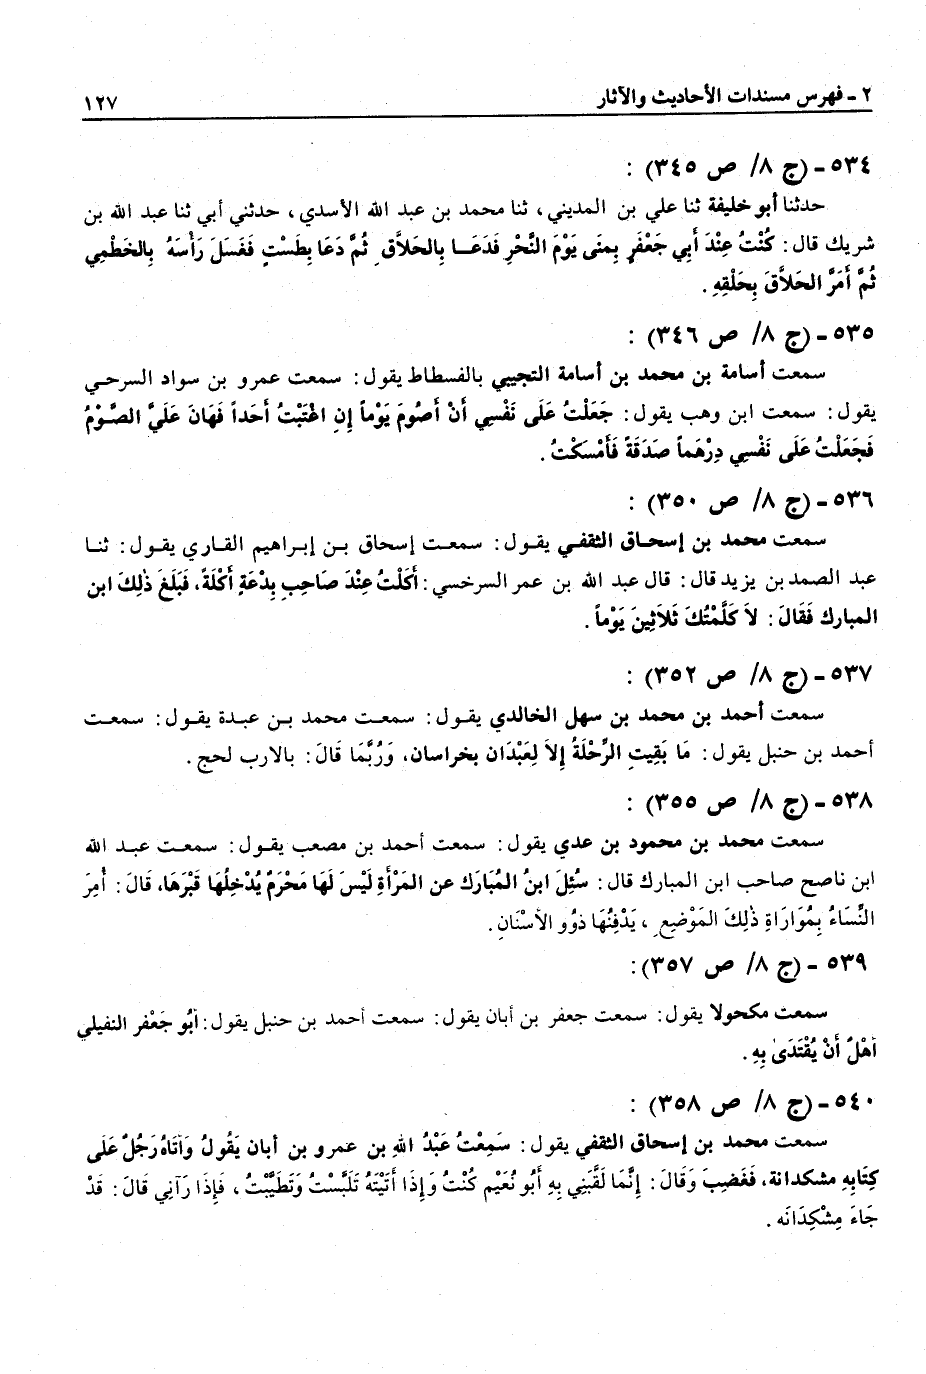 ٢ ـ فهرس مسندات الأحاديث والآثار
١٢٧
٥٣٤ ـ (ج ٨/ ص ٣٤٥) :
حدثنا أبو خليفة ثنا علي بن المديني، ثنا محمد بن عبد الله الأسدي، حدثني أبي ثنا عبد الله بن
شريك قال: كُنْتُ عِنْدَ أَبِي جَعْفَرٍ بِمنَى يَوْمَ النَّحْرِ فَدَعَـا بِالحَلاَّقِ ثُمَّ دَعَا بِطَسْتٍ فَغَسَلَ رَأْسَهُ بِالخَطْمِي
ثُمَّ أَمَرَّ الحَلاَّقَ بِحَلْقِهِ .
٥٣٥ ـ (ج ٨/ ص ٣٤٦) :
سمعت أسامة بن محمد بن أسامة التجيبي بالفسطاط يقول: سمعت عمرو بن سواد السرحي
يقول: سمعت ابن وهب يقول: جَعَلْتُ عَلَى نَفْسِي أَنْ أَصُومَ يَوْماً إِن اغْتَبْتُ أَحَداً فَهَانَ عَلَيَّ الصَّوْمُ
فَجَعَلْتُ عَلَى نَفْسِي دِرْهَماً صَدَقَةً فَأَمْسَكْتُ .
٥٣٦ ـ (ج ٨/ ص ٣٥٠) :
سمعت محمد بن إسحاق الثقفي يقول: سمعت إسحاق بن إبراهيم القاري يقول: ثنا
عبد الصمد بن يزيد قال: قال عبد الله بن عمر السرخسي: أَكَلْتُ عِنْدَ صَاحِبِ بِدْعَةٍ أَكْلَةً، فَبَلَغَ ذٰلِكَ ابن
المبارك فَقَالَ: لاَ كَلَّمْتُكَ ثَلاَثِينَ يَوْماً .
٥٣٧ ـ (ج ٨/ ص ٣٥٢) :
سمعت أحمد بن محمد بن سهل الخالدي يقول: سمعت محمد بن عبدة يقول: سمعت
أحمد بن حنبل يقول: مَا بَقِيَتِ الرِّحْلَةُ إِلاَّ لِعَبْدَان بخراسان، وَرُبَّمَا قَالَ: بالارب لحج .
٥٣٨ ـ (ج ٨/ ص ٣٥٥) :
سمعت محمد بن محمود بن عدي يقول: سمعت أحمد بن مصعب يقول: سمعت عبد الله
ابن ناصح صاحب ابن المبارك قال: سُئِلَ ابنُ المُبَارَك عن المَرْأَةِ لَيْسَ لَهَا مَحْرَمٌ يُدْخِلُهَا قَبْرَهَا، قَالَ: أُمِرَ
النِّسَاءُ بِمُوَارَاةِ ذٰلِكَ المَوْضِعِ ، يَدْفِنُهَا ذَوُو الأَسْنَانِ .
٥٣٩ ـ (ج ٨/ ص ٣٥٧):
سمعت مكحولا يقول: سمعت جعفر بن أبان يقول: سمعت أحمد بن حنبل يقول: أَبُو جَعْفَر النفيلي
أَهْلٌ أَنْ يُقْتَدَىٰ بِهِ .
٥٤٠ ـ (ج ٨/ ص ٣٥٨) :
سمعت محمد بن إسحاق الثقفي يقول: سَمِعْتُ عَبْدُ اللهِ بن عمرو بن أبان يَقُولُ وَأَتَاهُ رَجُلٌ عَلَى
كِتَابِهِ مشكدانة، فَغَضِبَ وَقَالَ: إِنَّمَا لَقَّبَنِي بِهِ أَبُو نُعَيْم كُنْتُ وَإِذَا أَتَيْتَهُ تَلَبَّسْتُ وَتَطَيَّبْتُ ، فَإِذَا رَآنِي قَالَ: قَدْ
جَاءَ مِشْكِدَانَه .